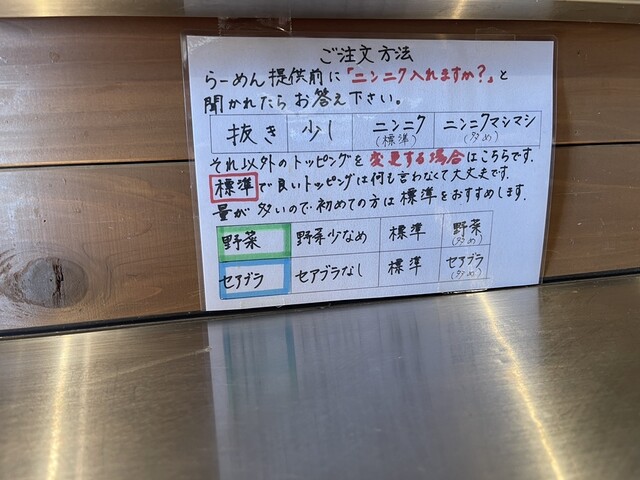 ご注文方法
らーめん提供前に「ニンニク入れますか?」と
聞かれたらお答え下さい。
抜き 少し ニンニク(標準) ニンニクマシマシ(多め)
それ以外のトッピングを変更する場合はこちらです.
標準で良いトッピングは何も言わなくて大丈夫です.
量が多いので初めての方は標準をおすすめします.
野菜 野菜少なめ 標準 野菜(多め)
セアブラ セアブラなし 標準 セアブラ(多め)